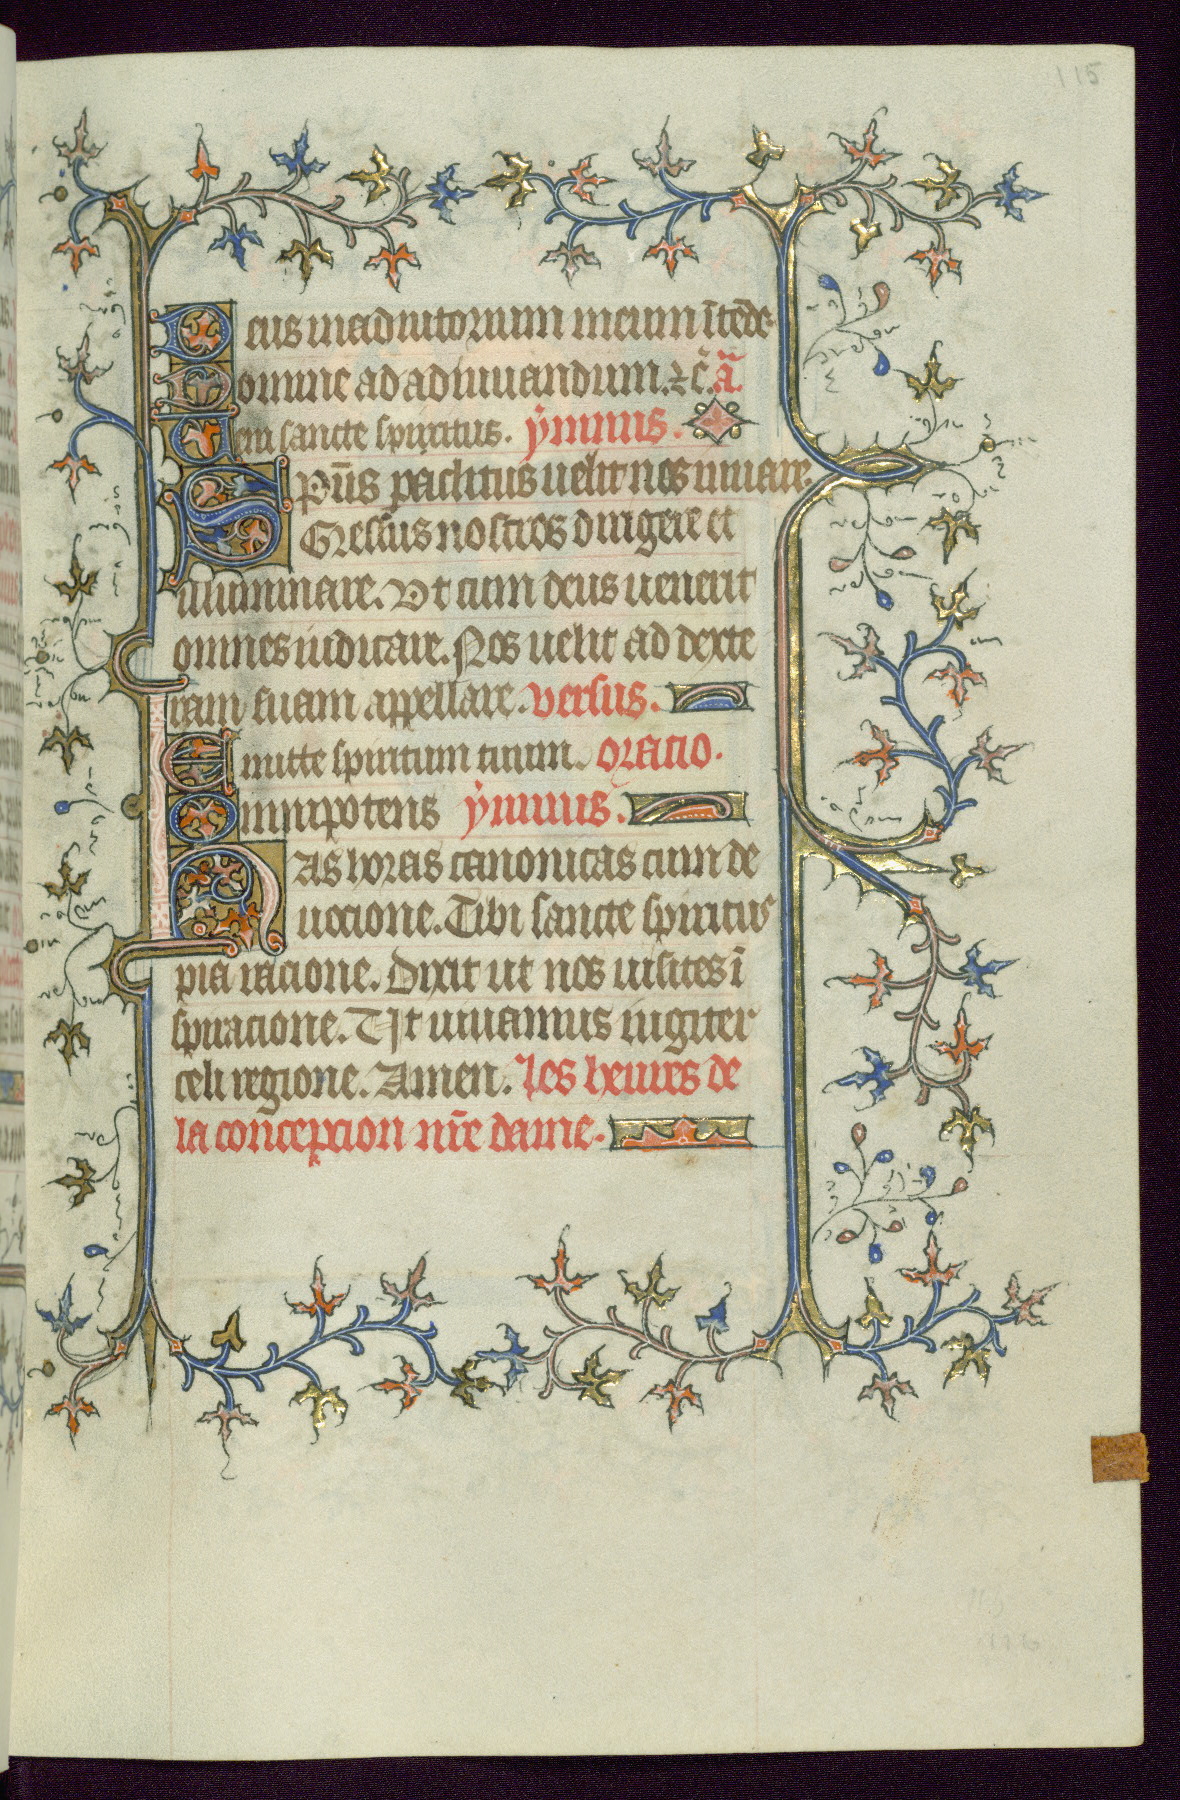 115
Deus in adiutorium meum ītēde
Domine ad adiuuandum. ⁊c̄. ā.
Ueni sancte spiritus. ẏmnus.
Spūs paclitus uelit nos iuuare.
Gressus nostros dirigere et
illuminare. Vt cum deus uenerit
omnes iudicare. Nos uelit ad dexte
ram suam appellare. versus.
Emitte spiritum tuum. oracio.
Omnipotens ẏmnus.
Has horas canonicas cum de
uocione. Tibi sancte spiritus
pia racione. Dixit ut nos uisites ī
spiracione. Ut uiuamus iugiter
celi regione. Amen. Les heures de
la concepcion nr̄e dame.